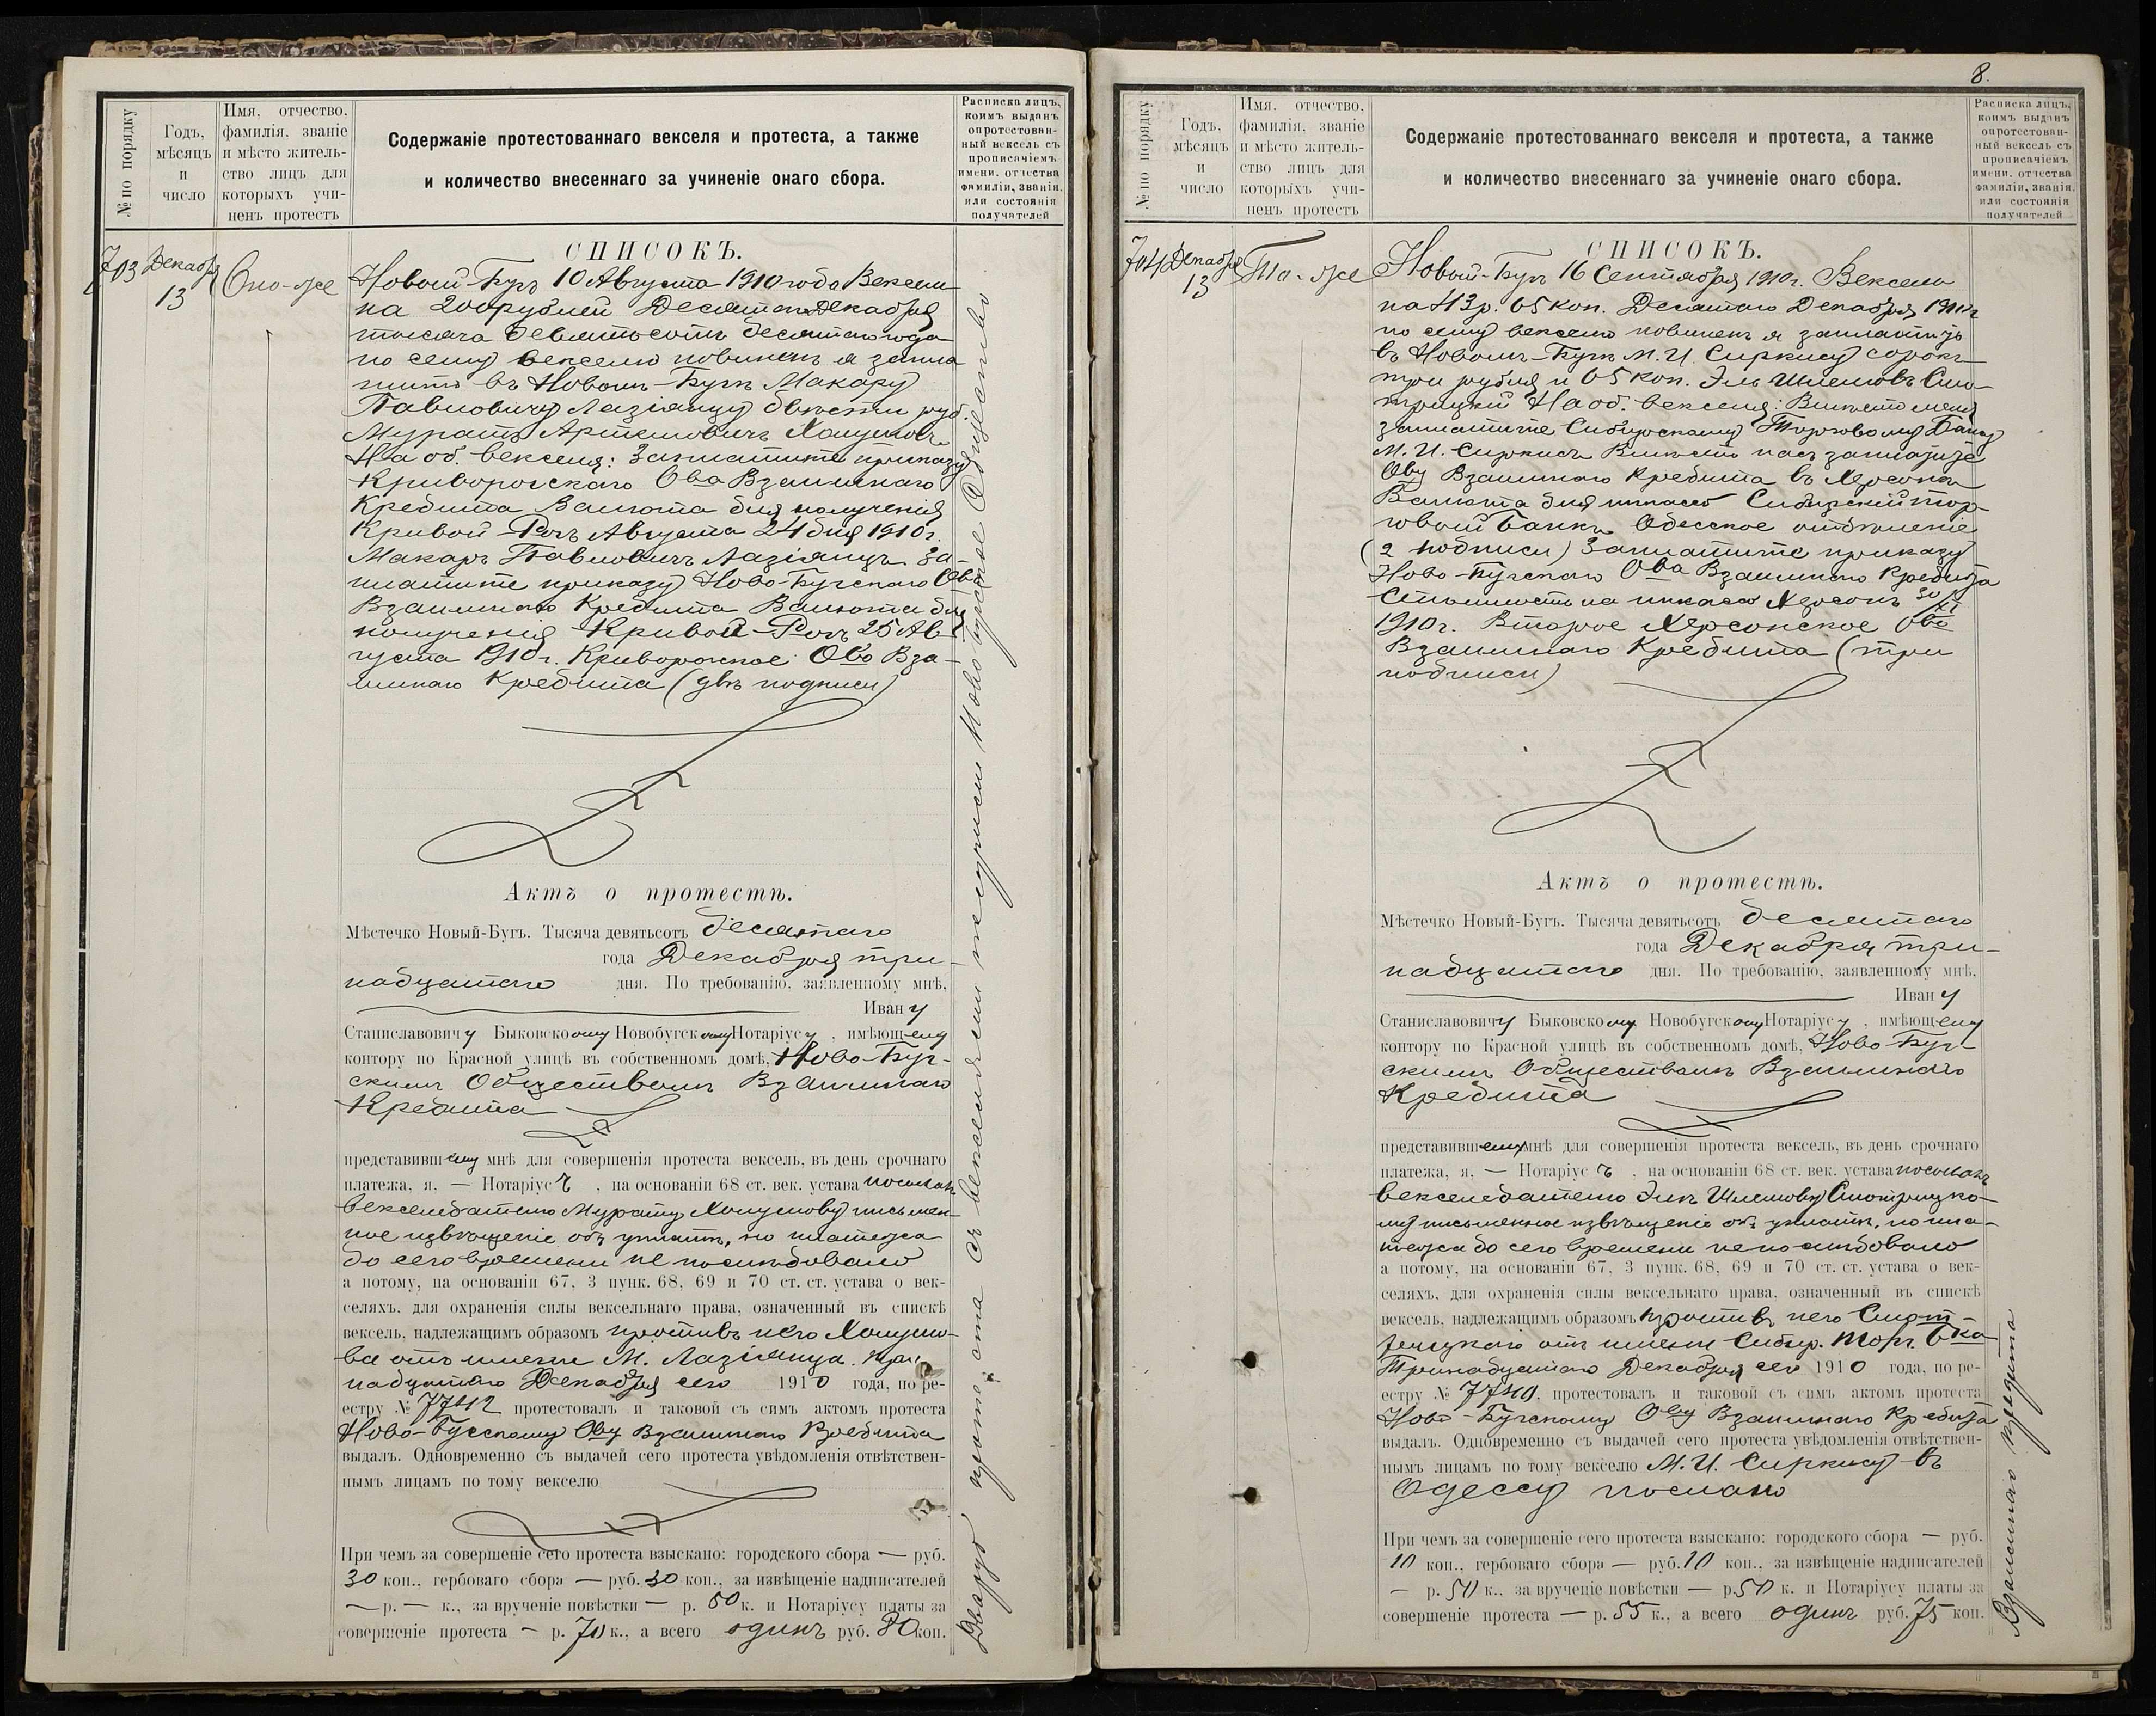 № по порядку
Годъ,
мѣсяцъ
и
число
Имя, отчество,
фамилія, званіе
и мѣсто житель-
ство лицъ для
которыхъ учи-
ненъ протестъ
Содержаніе протестованнаго векселя и протеста, а также
и количество внесеннаго за учиненіе онаго сбора.
Расписка лицъ,
коимъ выданъ
опротестован-
ный вексель съ
прописаніемъ
имени, отчества
фамиліи, званія,
или состоянія
получателей
СПИСОКЪ.
703
Декабря
13
Оно-же
Новый-Бугъ 10 Августа 1910 года Вексель
на 200 рублей Десятаго Декабря
тысяча девятьсотъ десятаго года
по сему векселю повиненъ я запла
тить въ Новомъ-Бугѣ Макару
Павловичу Лазіянцу двѣсти руб.
Муратъ Артемовичъ Халумовъ
На об. векселя: Заплатите приказу
Криворогскаго Ова Взаимнаго
Кредита Валюта для полученія
Кривой-Рогъ Августа 24 дня 1910 г.
Макаръ Павловичъ Лазіянцъ За-
платите приказу Ново-Бугскаго Ова
Взаимнаго Кредита Валюта для
полученія Кривой-Рогъ 25 Ав-
густа 1910 г. Криворогское Ово Вза-
имнаго Кредита (двѣ подписи)
Актъ о протестѣ.
Мѣстечко Новый-Бугъ. Тысяча девятьсотъ десятаго
года Декабря три-
надцатаго дня. По требованію, заявленному мнѣ,
Ивану
Станиславовичу Быковскому Новобугскому Нотаріусу, имѣющему
контору по Красной улицѣ въ собственномъ домѣ, Ново-Буг-
скимъ Обществомъ Взаимнаго
Кредита
представившему мнѣ для совершенія протеста вексель, въ день срочнаго
платежа, я, — Нотаріусъ, на основаніи 68 ст. век. устава послалъ
векселедателю Мурату Халумову письмен-
ное извѣщеніе объ уплатѣ, но платежа
до сего времени не послѣдовало
а потому, на основаніи 67, 3 пунк. 68, 69 и 70 ст. ст. устава о век-
селяхъ, для охраненія силы вексельнаго права, означенный въ спискѣ
вексель, надлежащимъ образомъ противъ него Халумо-
ва отъ имени М. Лазіянца. Три
надцатаго Декабря сего 1910 года, по ре-
естру № 7742 протестовалъ и таковой съ симъ актомъ протеста
Ново-Бугскому Ову Взаимнаго Кредита
выдалъ. Одновременно съ выдачей сего протеста увѣдомленія отвѣтствен-
нымъ лицамъ по тому векселю
При чемъ за совершеніе сего протеста взыскано: городского сбора — руб.
30 коп., гербоваго сбора — руб. 30 коп., за извѣщеніе надписателей
— р. — к., за врученіе повѣстки — р. 50 к. и Нотаріусу платы за
совершеніе протеста — р. 70 к., а всего одинъ руб. 80 коп.
Два протеста съ векселями получило Ново-Бугское Общество
8.
№ по порядку
Годъ,
мѣсяцъ
и
число
Имя, отчество,
фамилія, званіе
и мѣсто житель-
ство лицъ для
которыхъ учи-
ненъ протестъ
Содержаніе протестованнаго векселя и протеста, а также
и количество внесеннаго за учиненіе онаго сбора.
Расписка лицъ,
коимъ выданъ
опротестован-
ный вексель съ
прописаніемъ
имени, отчества
фамиліи, званія,
или состоянія
получателей
СПИСОКЪ.
704
Декабря
13
То-же
Новый-Бугъ 16 Сентября 1910 г. Вексель
на 43 р. 05 коп. Десятаго Декабря 1910 г
по сему векселю повиненъ я заплатить
въ Новомъ-Бугѣ М. И. Сиркису сорокъ
три рубля и 05 коп. Эль Шлемовъ Смо-
трицкій На об. векселя: Вмѣсто меня
заплатите Сибирскому Торговому Банку
М. И. Сиркисъ Вмѣсто насъ заплатите
Ову Взаимнаго Кредита въ Херсонѣ
Валюта для инкассо Сибирскій Тор-
говый Банкъ Одесское отдѣленіе
(2 подписи) Заплатите приказу
Ново-Бугскаго Ова Взаимнаго Кредита
Стоимость на инкассо Херсонъ 30/XI
1910 г. Второе Херсонское Ово
Взаимнаго Кредита (три
подписи)
Актъ о протестѣ.
Мѣстечко Новый-Бугъ. Тысяча девятьсотъ десятаго
года Декабря три-
надцатаго дня. По требованію, заявленному мнѣ,
Ивану
Станиславовичу Быковскому Новобугскому Нотаріусу, имѣющему
контору по Красной улицѣ въ собственномъ домѣ, Ново-Буг-
скимъ Обществомъ Взаимнаго
Кредита
представившему мнѣ для совершенія протеста вексель, въ день срочнаго
платежа, я, — Нотаріусъ, на основаніи 68 ст. век. устава послалъ
векселедателю Элю Шлемову Смотрицко-
му письменное извѣщеніе объ уплатѣ, но пла-
тежа до сего времени не послѣдовало
а потому, на основаніи 67, 3 пунк. 68, 69 и 70 ст. ст. устава о век-
селяхъ, для охраненія силы вексельнаго права, означенный въ спискѣ
вексель, надлежащимъ образомъ противъ него Смот-
рицкаго отъ имени Сибир. Торг. Бка
Тринадцатаго Декабря сего 1910 года, по ре-
естру № 7740, протестовалъ и таковой съ симъ актомъ протеста
Ново-Бугскому Ову Взаимнаго Кредита
выдалъ. Одновременно съ выдачей сего протеста увѣдомленія отвѣтствен-
нымъ лицамъ по тому векселю М. И. Сиркису въ
Одессу послано
При чемъ за совершеніе сего протеста взыскано: городского сбора — руб.
10 коп., гербоваго сбора — руб. 10 коп., за извѣщеніе надписателей
— р. 50 к., за врученіе повѣстки — р. 50 к. и Нотаріусу платы за
совершеніе протеста — р. 55 к., а всего одинъ руб. 75 коп.
Взаимнаго Кредита